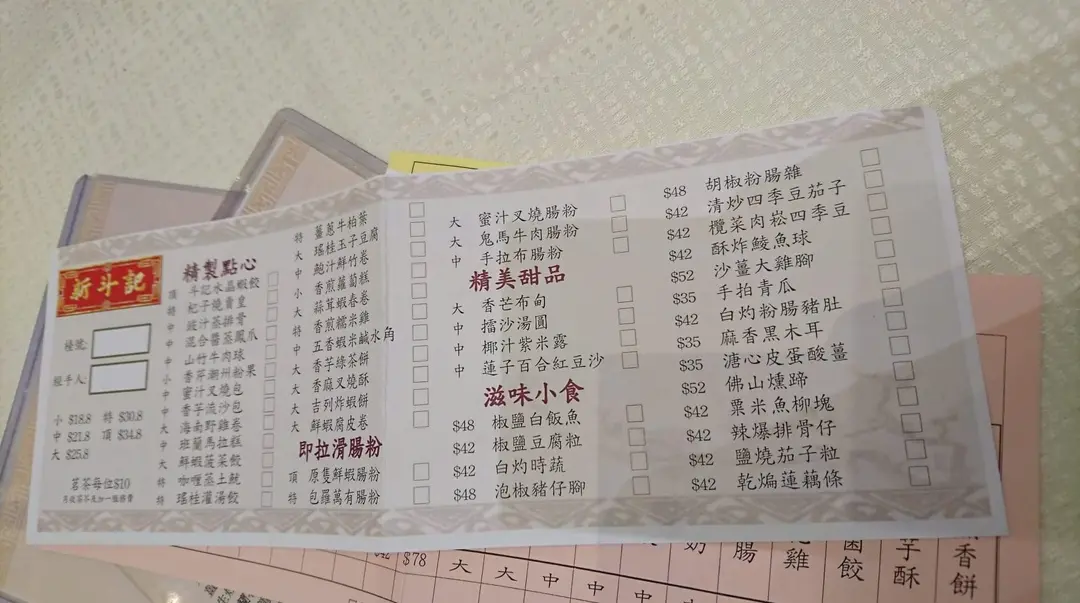 新斗記
檯號:
經手人:
小 $18.8 特 $30.8
中 $21.8 頂 $34.8
大 $25.8
茗茶每位$10
精製點心
頂 斗記水晶蝦餃
特 杞子燒賣皇
中 豉汁蒸排骨
中 混合醬蒸鳳爪
中 山竹牛肉球
小 香芹潮州粉果
中 蜜汁叉燒包
中 香芋流沙包
大 海南野雞卷
中 班蘭馬拉糕
大 鮮蝦菠菜餃
特 咖喱蒸土魷
特 瑤桂灌湯餃
特 薑蔥牛柏葉
大 瑤桂玉子豆腐
中 鮑汁鮮竹卷
小 香煎蘿蔔糕
中 蒜茸蝦春卷
大 香煎糯米雞
特 五香蝦米鹹水角
中 香芋綠茶餅
大 香麻叉燒酥
大 吉列炸蝦餅
大 鮮蝦腐皮卷
即拉滑腸粉
頂 原隻鮮蝦腸粉
特 包羅萬有腸粉
大 蜜汁叉燒腸粉
大 鬼馬牛肉腸粉
中 手拉布腸粉
精美甜品
大 香芒布甸
中 擂沙湯圓
中 椰汁紫米露
中 蓮子百合紅豆沙
滋味小食
$48 椒鹽白飯魚
$42 椒鹽豆腐粒
$42 白灼時蔬
$48 泡椒豬仔腳
$48 胡椒粉腸雜
$42 清炒四季豆茄子
$42 欖菜肉崧四季豆
$42 酥炸鯪魚球
$52 沙薑大雞腳
$35 手拍青瓜
$42 白灼粉腸豬肚
$35 麻香黑木耳
$35 溏心皮蛋酸薑
$52 佛山燻蹄
$42 粟米魚柳塊
$42 辣爆排骨仔
$42 鹽燒茄子粒
$42 乾煸蓮藕條
$42 $78 大 大 中 中 中
奶
腸
雞
餃
芋酥
香餅